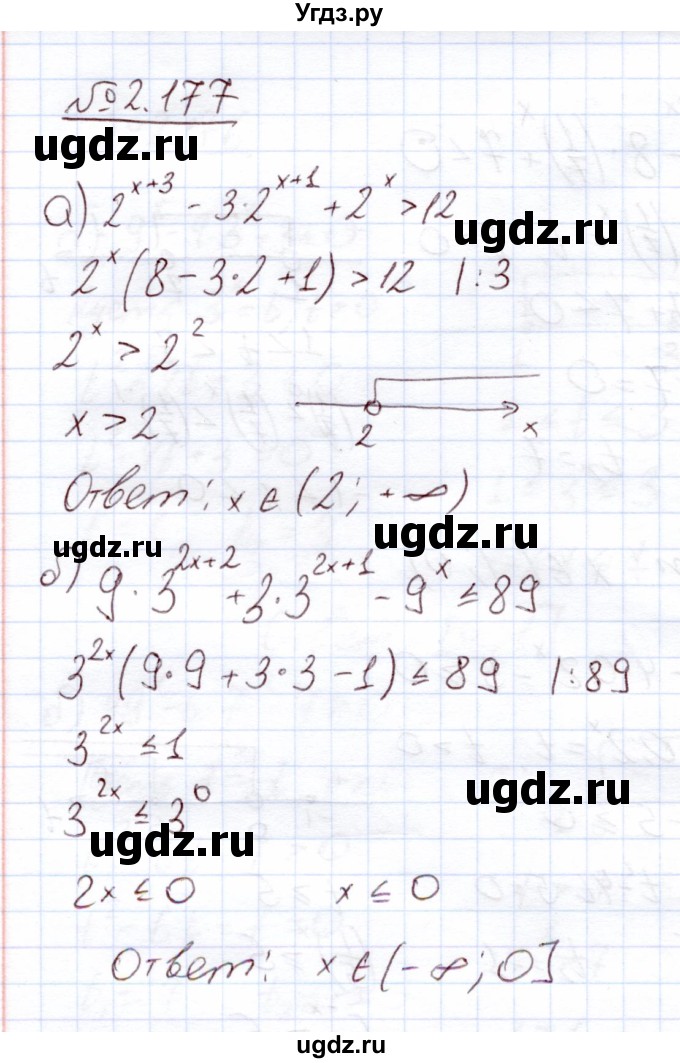 Угдз.ру
№2.177
ugdz.ru
а) 2^{x+3} - 3·2^{x+1} + 2^x > 12
ugdz.ru
2^x (8 - 3·2 + 1) > 12 |:3
2^x > 2^2
x > 2
2 x
Ответ: x ∈ (2; +∞)
ugdz.ru ugdz.ru
б) 9·3^{2x+2} + 3·3^{2x+1} - 9^x ≤ 89
3^{2x} (9·9 + 3·3 - 1) ≤ 89 |:89
3^{2x} ≤ 1
ugdz.ru
3^{2x} ≤ 3^0
ugdz.ru
2x ≤ 0 x ≤ 0
Ответ: x ∈ (-∞; 0]
ugdz.ru
Угдз.ру